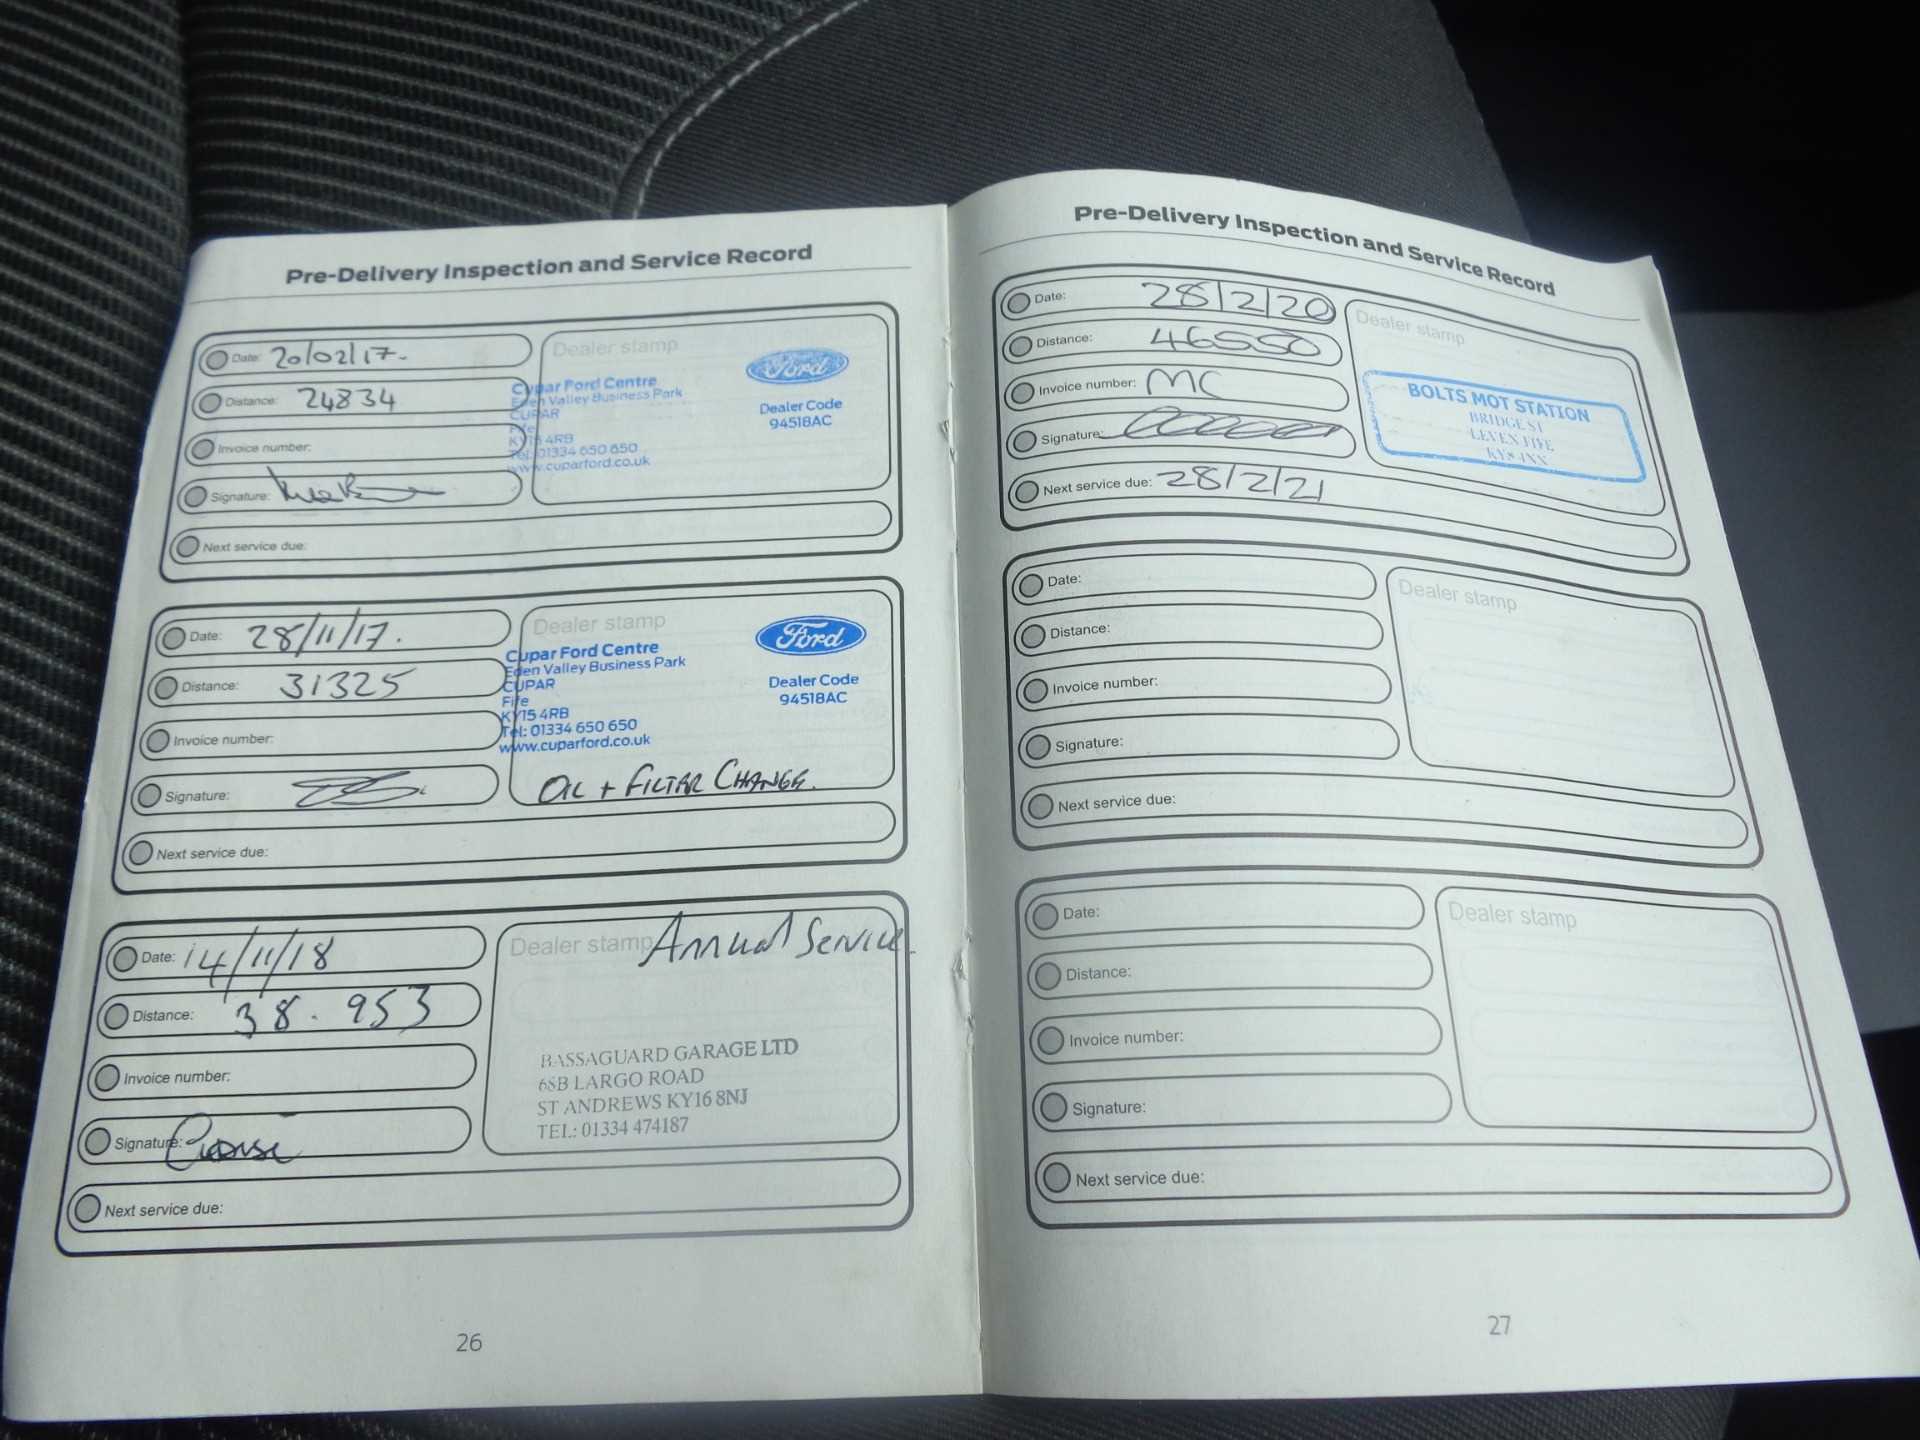 Pre-Delivery Inspection and Service Record
Date: 20/02/17.
Distance: 24834
Invoice number:
Signature:
Next service due:
Dealer stamp
Ford
Cupar Ford Centre
Eden Valley Business Park
CUPAR
Fife
KY15 4RB
Tel: 01334 650 650
www.cuparford.co.uk
Dealer Code
94518AC
Date: 28/11/17.
Distance: 31325
Invoice number:
Signature:
Next service due:
Dealer stamp
Ford
Cupar Ford Centre
Eden Valley Business Park
CUPAR
Fife
KY15 4RB
Tel: 01334 650 650
www.cuparford.co.uk
Dealer Code
94518AC
OIL + FILTER CHANGE.
Date: 14/11/18
Distance: 38.953
Invoice number:
Signature:
Next service due:
Dealer stamp Annual Service
BASSAGUARD GARAGE LTD
68B LARGO ROAD
ST ANDREWS KY16 8NJ
TEL: 01334 474187
26
Pre-Delivery Inspection and Service Record
Date: 28/2/20
Distance: 46550
Invoice number: MC
Signature:
Next service due: 28/2/21
Dealer stamp
BOLTS MOT STATION
BRIDGE ST
LEVEN FIFE
KY8 4NX
Date:
Distance:
Invoice number:
Signature:
Next service due:
Dealer stamp
Date:
Distance:
Invoice number:
Signature:
Next service due:
Dealer stamp
27